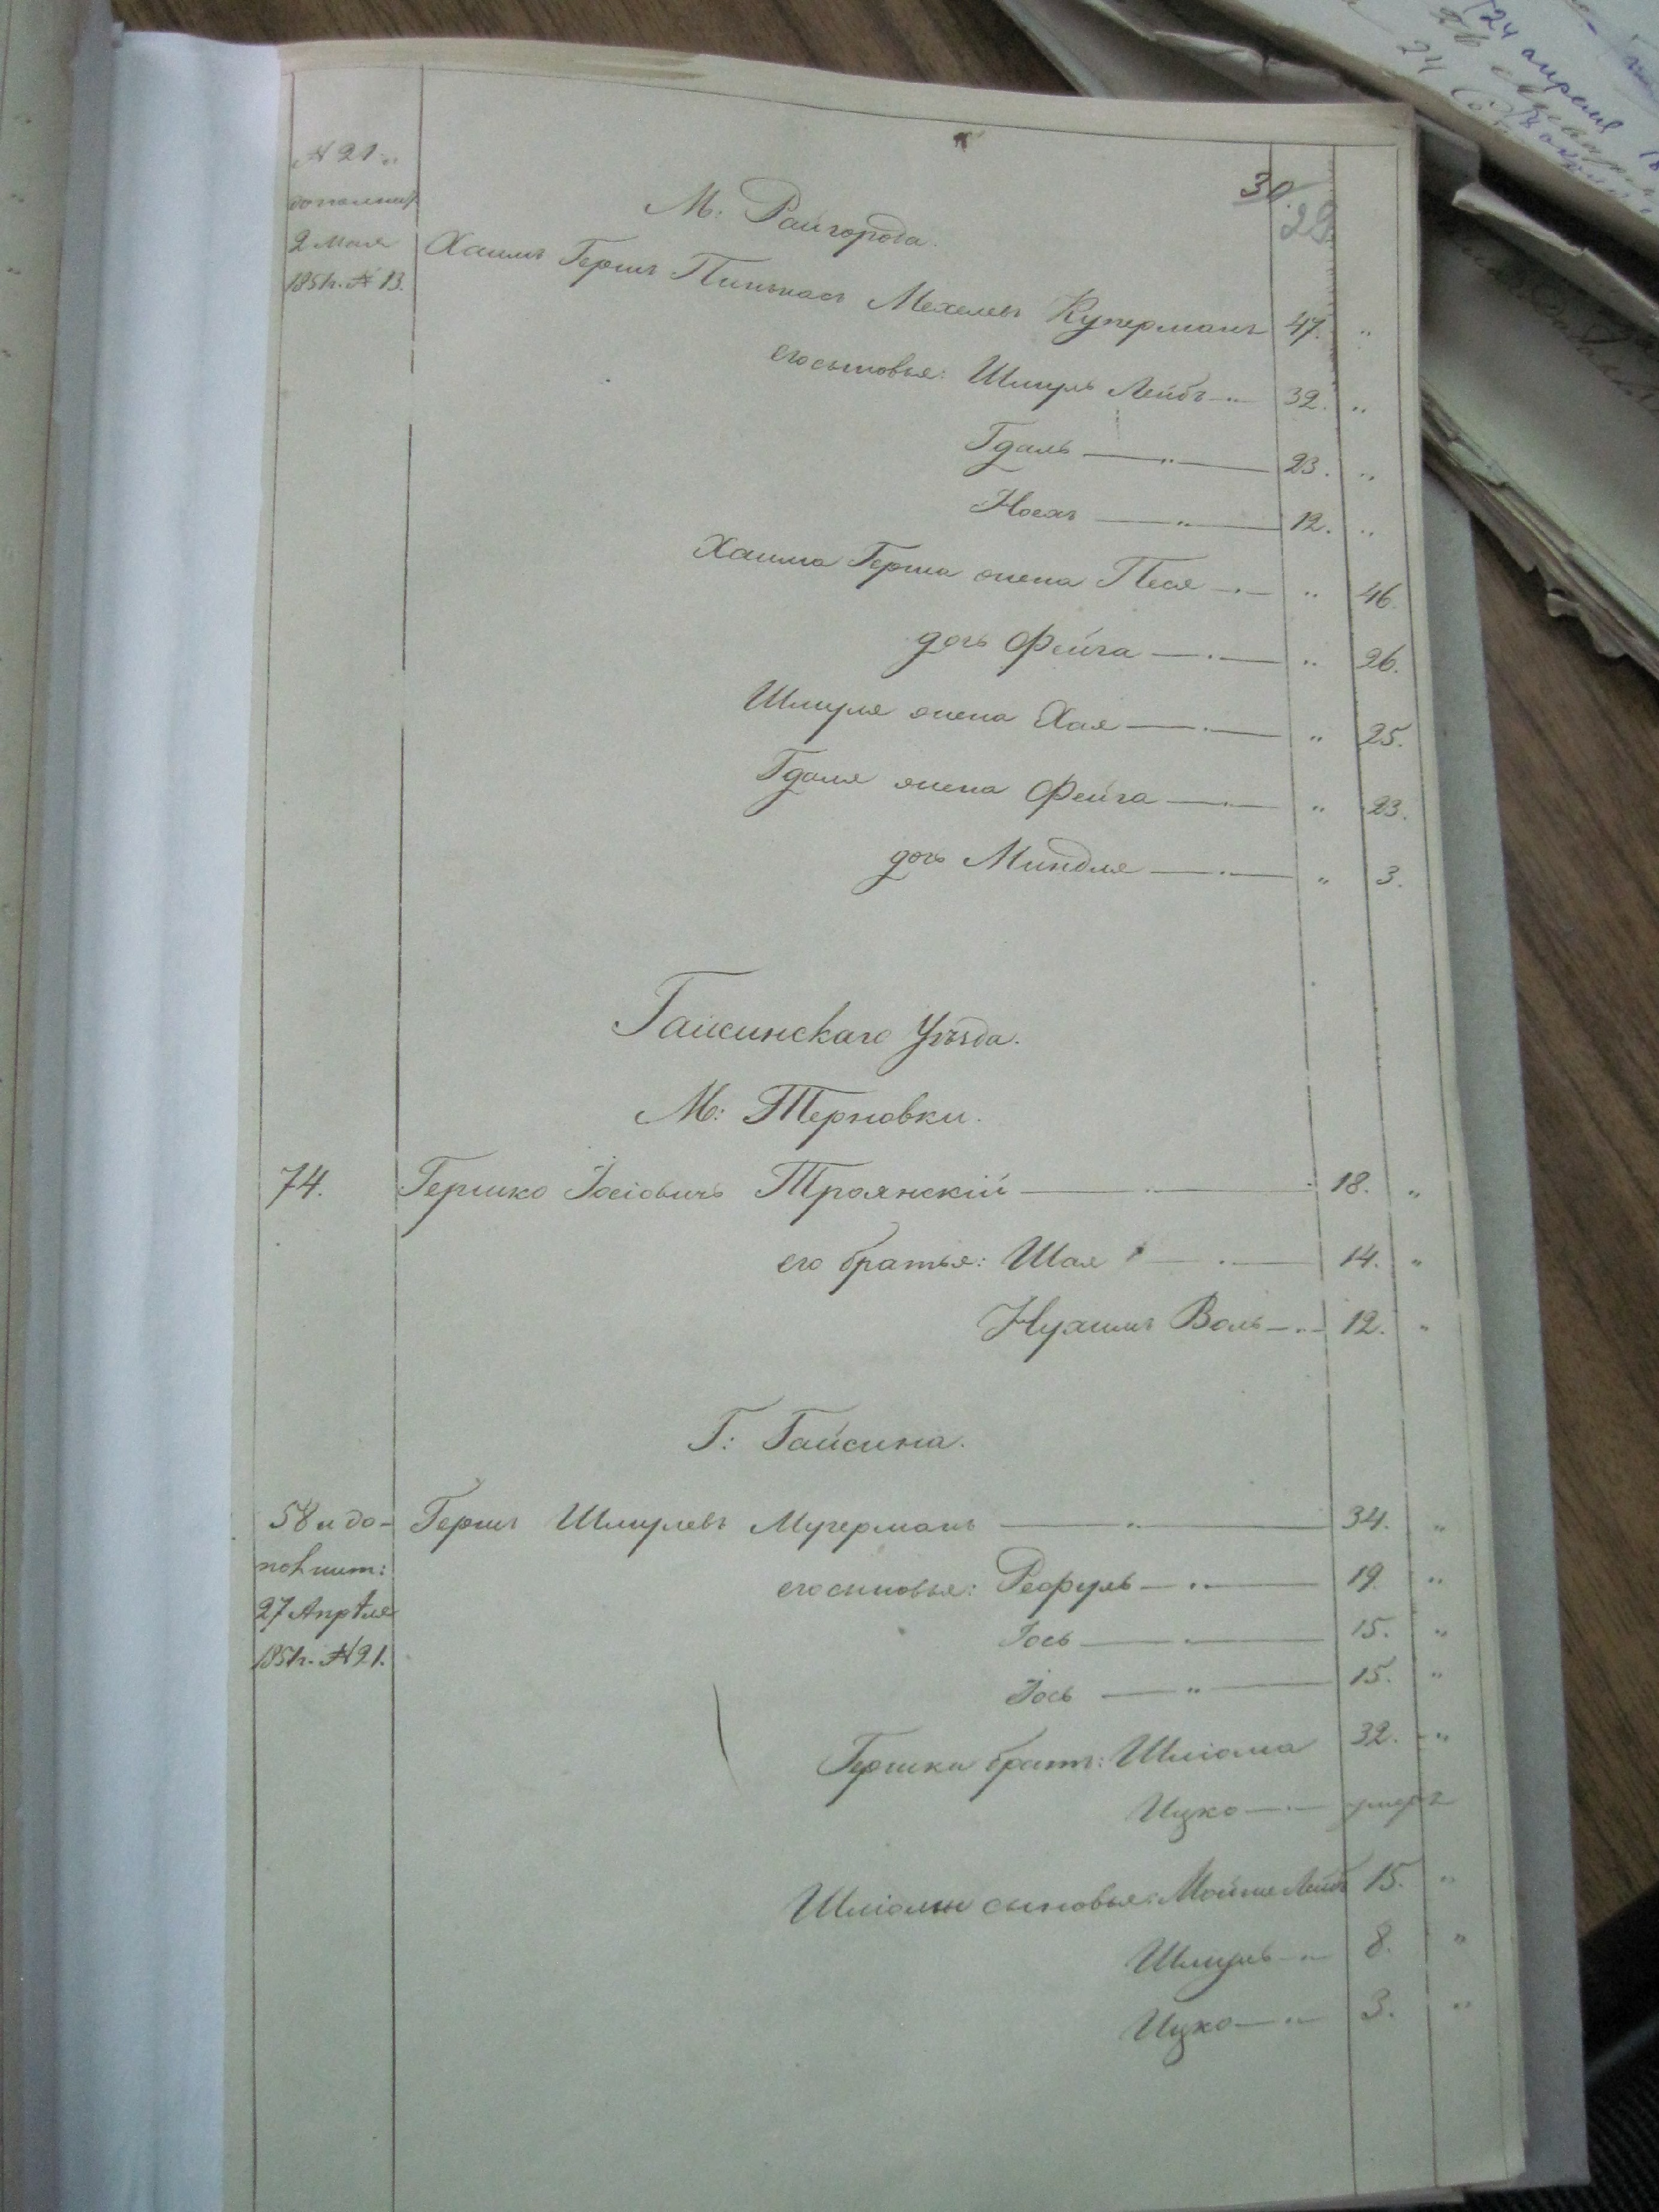 30
29
№ 21.
дополнит
2 Мая
185 г. № 13.
М: Райгорода.
Хаимъ Гершъ Пинькасъ Мехелевъ Куперманъ 47. "
его сыновья: Шмуль Лейбъ 32. "
Гдаль 23. "
Ноехъ 12. "
Хаима Герша жена Песя " 46.
дочь Фейга " 26.
Шмуля жена Хая " 25.
Гдаля жена Фейга " 23.
дочь Миндля " 3.
Гайсинскаго Уѣзда.
М: Терновки.
74. Гершко Іосіовичъ Троянскій 18. "
его братья: Шая 14. "
Нухимъ Воль 12. "
Г: Гайсина.
58 и до- Гершъ Шмулевъ Мучерманъ 34. "
полнит:
его сыновья: Рефуль 19. "
27 Апрѣля
Іось 15. "
185 г. № 21.
Іось 15. "
Гершки брат: Шліома 32. "
Ицко умеръ
Шліомы сыновья: Мойше Лейбъ 15. "
Шмуль 8. "
Ицко 3. "
24 апреля
24